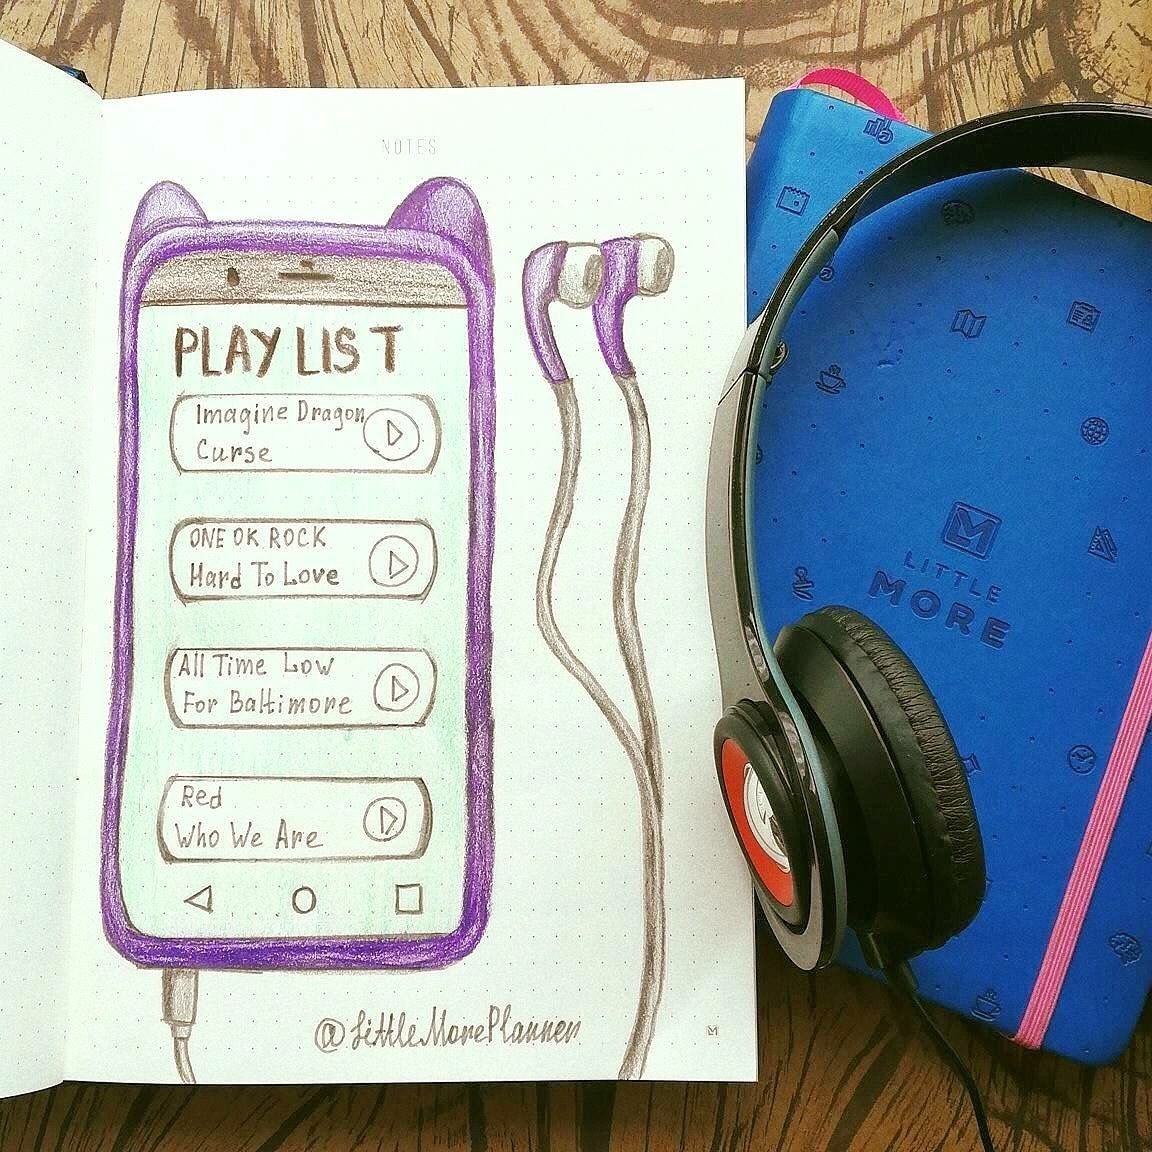 NOTES
PLAYLIST
Imagine Dragon
Curse
ONE OK ROCK
Hard To Love
All Time Low
For Baltimore
Red
Who We Are
@LittleMorePlanner
LITTLE
MORE